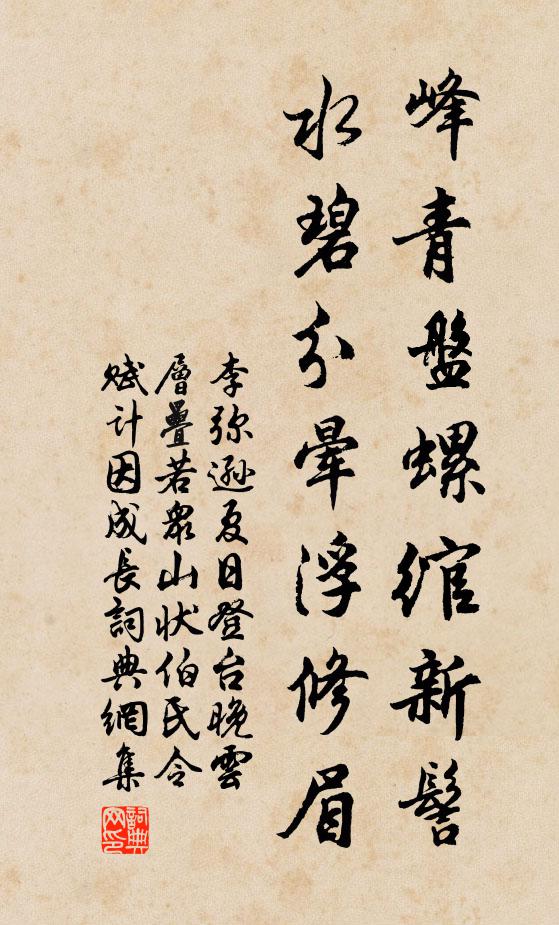 峰青盤螺綰新髻
水碧分暈浮修眉
李弥遜夏日登台晚雲
層疊若衆山狀伯氏令
賦計因成長詞典網集
詞典網印